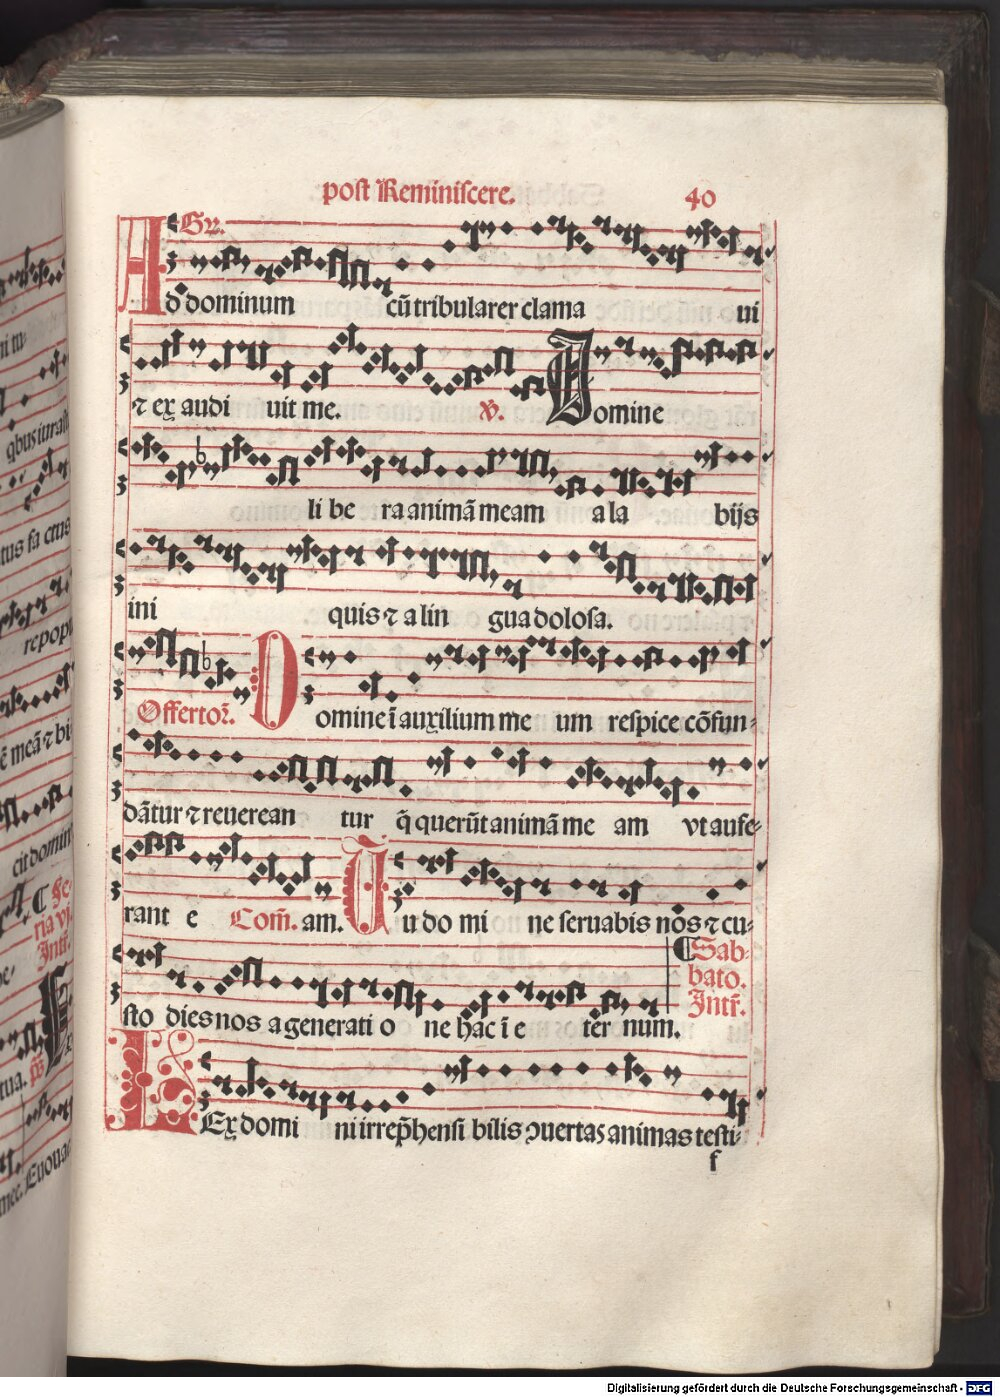 post Reminiscere. 40
Gr.
Ad dominum cū tribularer clama ui
⁊ ex audi uit me. V. Domine
li be ra animā meam a la bijs
ini quis ⁊ a lin gua dolosa.
Offertor. Domine ī auxilium me um respice cōfun-
dātur ⁊ reuerean tur q̄ querūt animā me am vt aufe-
rant e am. Com̄. Tu do mi ne seruabis nos ⁊ cu-
sto dies nos a generati o ne hac ī e ter num.
¶ Sab-
bato.
Intr̄.
LEx domi ni irrep̄hensi bilis ꝯuertas animas testi-
f
ni tu
qbus iurasti
tus fa ctus
repopu
ē meā ⁊ bi
cit domin
¶ Fe-
ria vj.
Intr̄.
tua. ps̄
Euouae
Digitalisierung gefördert durch die Deutsche Forschungsgemeinschaft - DFG